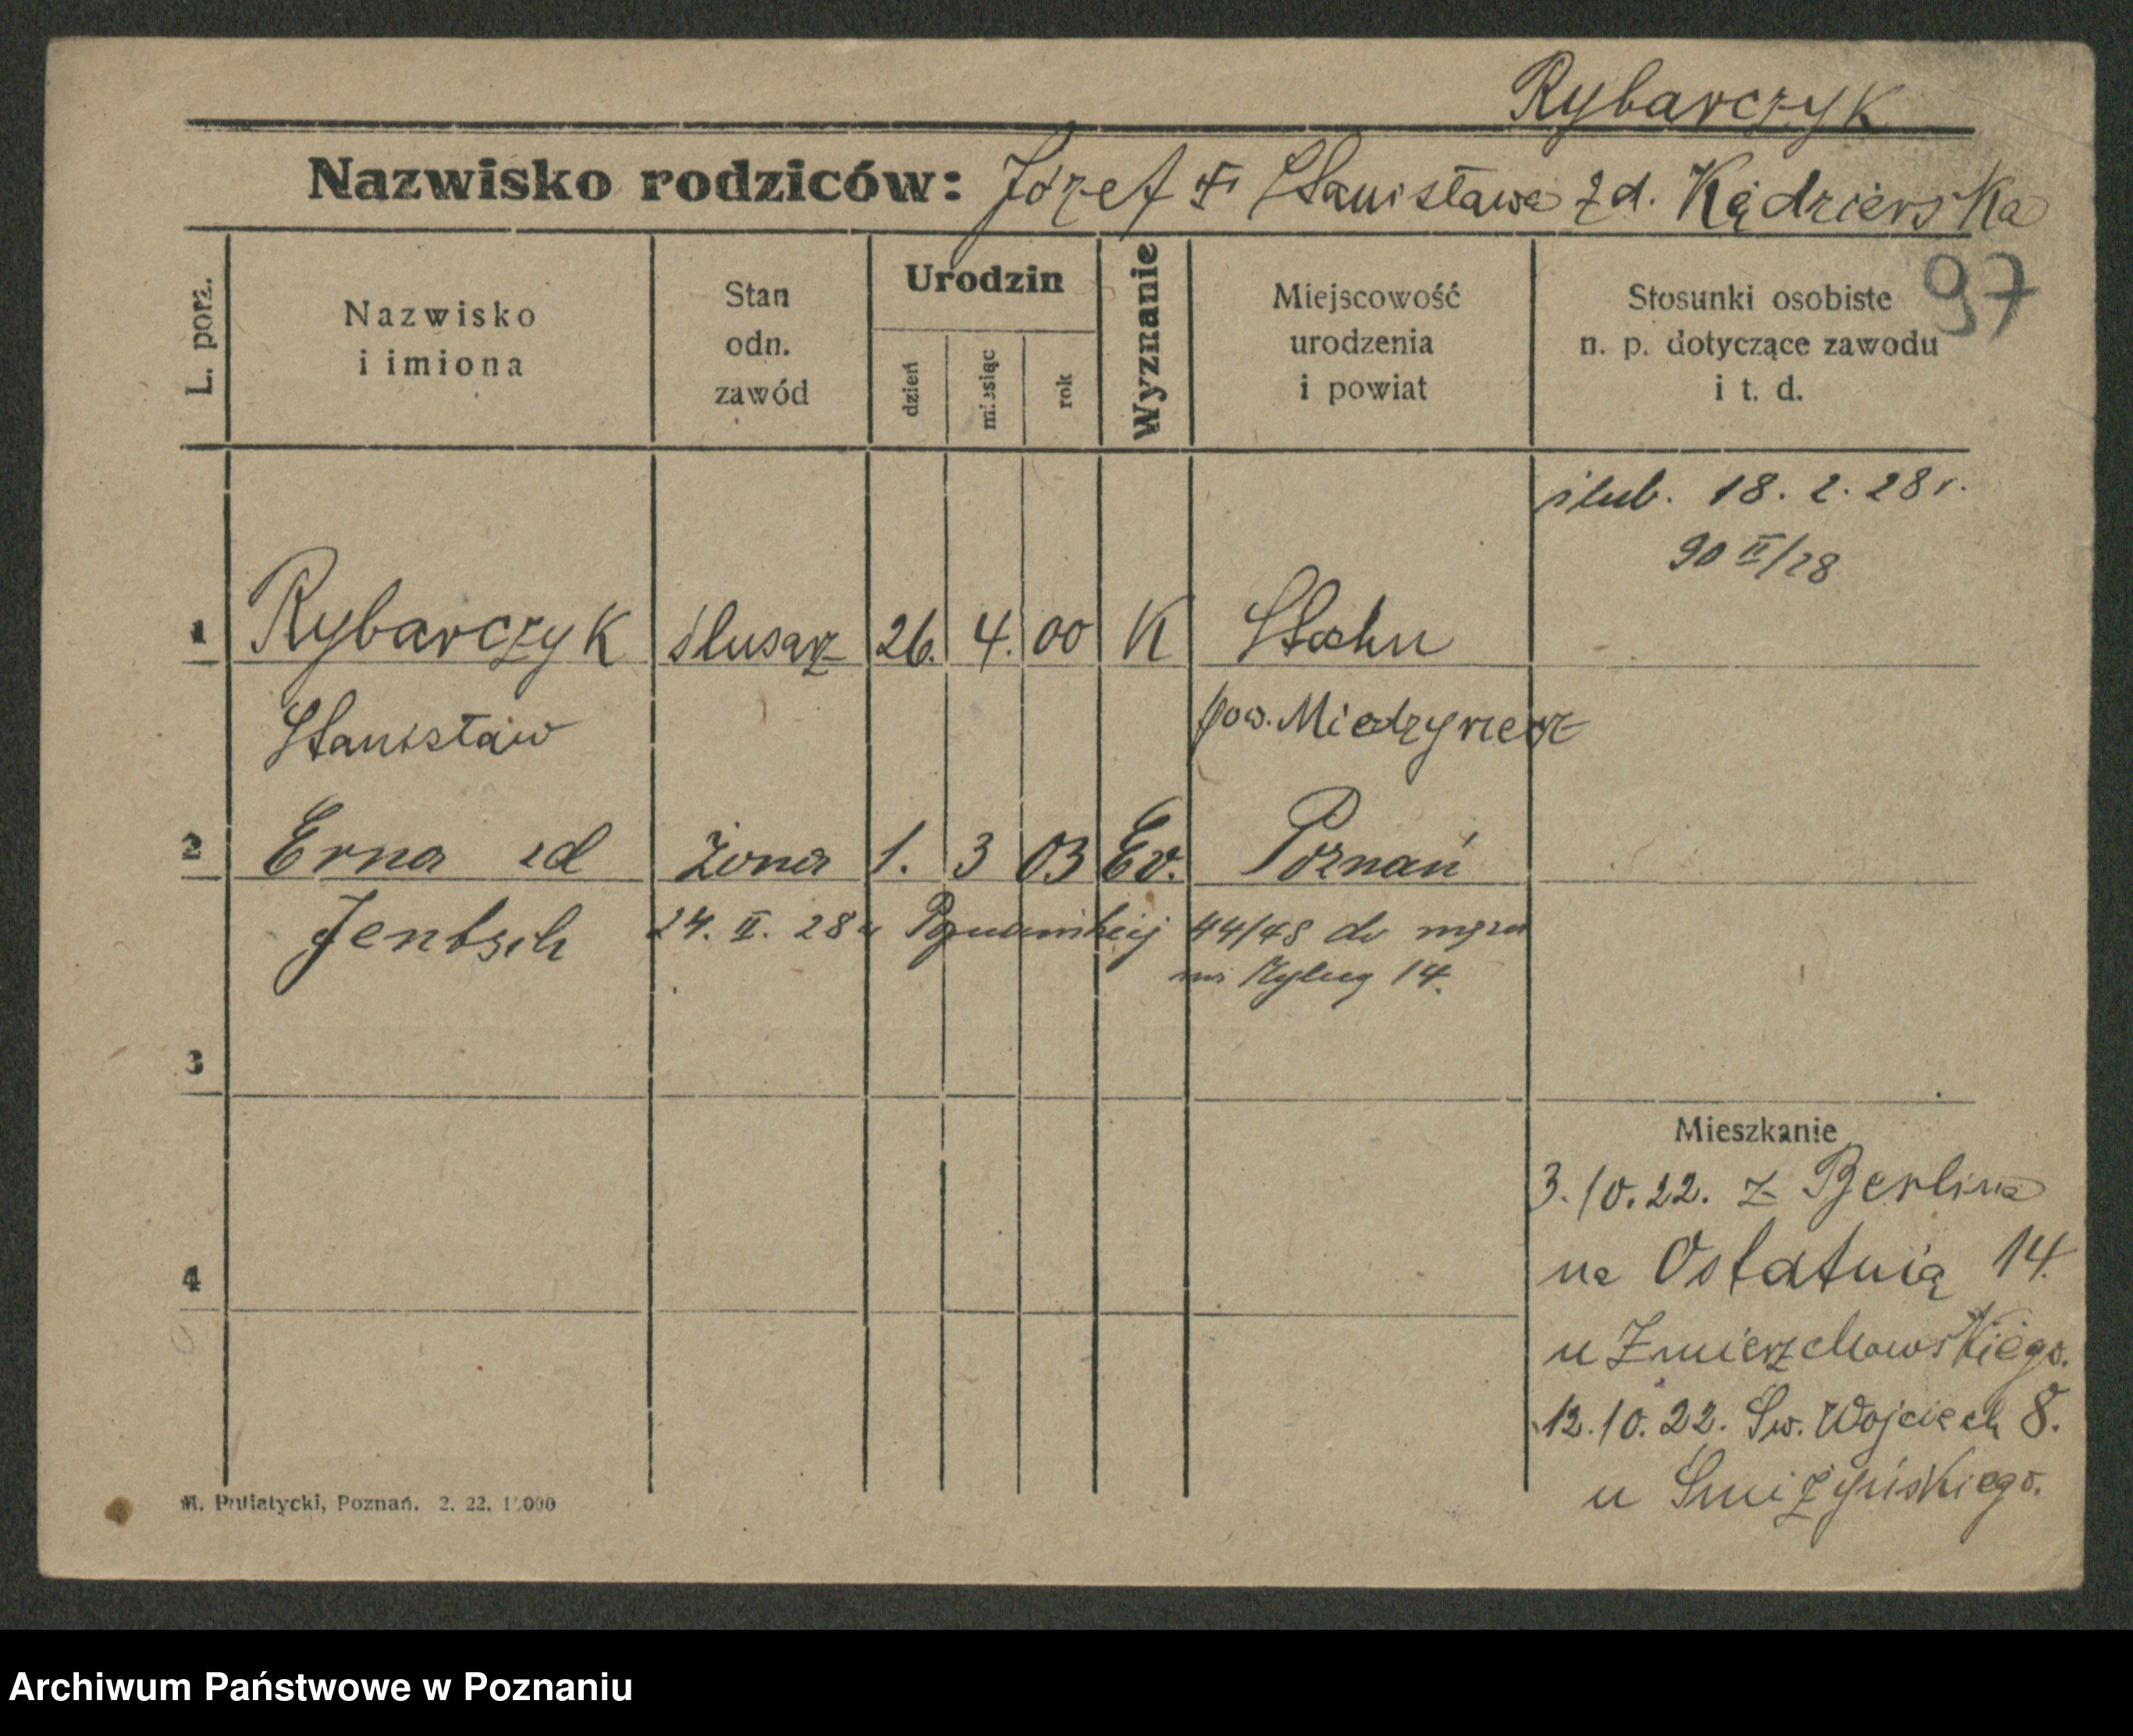 Rybarczyk
Nazwisko rodziców: Józef + Stanisława zd. Kądzierska
97
L. porz.
Nazwisko
i imiona
Stan
odn.
zawód
Urodzin
dzień
miesiąc
rok
Wyznanie
Miejscowość
urodzenia
i powiat
Stosunki osobiste
n. p. dotyczące zawodu
i t. d.
ślub. 18. 2. 28 r.
90 II/28
1 Rybarczyk ślusarz 26. 4. 00 K
Stanisław pow. Miedzyrzecz
2 Erna zd żona 1. 3 03 Ev. Poznań
Jentsch 24. II. 28 44/48 do
14.
3
Mieszkanie
3. 10. 22. z Berlina
na Ostatnią 14.
4
u Zmierzchowskiego.
12. 10. 22. Św. Wojciech 8.
u Śmiżyńskiego.
M. Putiatycki, Poznań. 2. 22. 1 000
Archiwum Państwowe w Poznaniu